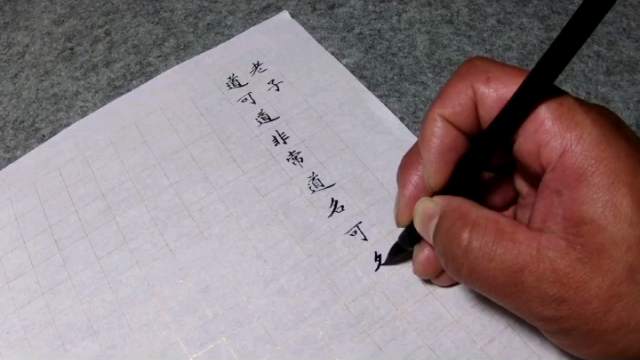 老子
道可道非常道名可夕